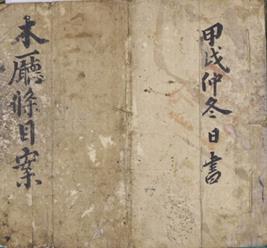 甲戌仲冬日書
木廳條目案